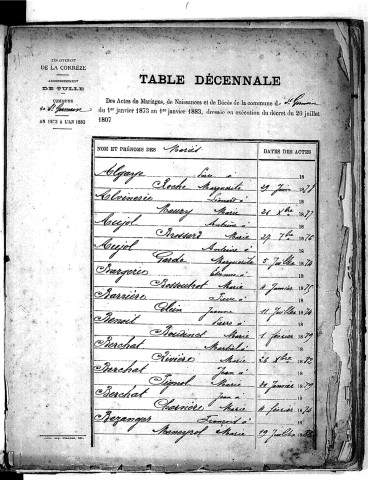 DÉPARTEMENT
DE LA CORRÈZE
ARRONDISSEMENT
DE TULLE
COMMUNE
de St
AN 1873 A L'AN 1883
TABLE DÉCENNALE
Des Actes de Mariages, de Naissances et de Décès de la commune de St
du 1er janvier 1873 au 1er janvier 1883, dressée en exécution du décret du 20 juillet
1807
NOM ET PRÉNOMS DES Mariés DATES DES ACTES
Pierre à 18
Roche Marguerite 29 Juin 18
Léonard à 18
Maury Marie 26 Xbre 1877
Aujol Antoine à 18
Brossard Marie 27 7bre 1876
Aujol Antoine à 18
Garde Marguerite 5 Juillet 1874
Bargerie Etienne à 18
Marie 4 Janvier 1875
Barrière Pierre à 18
Jeanne 11 Juillet 1874
Benoit Pierre à 18
Marie 1 février 1879
Berchat Martial à 18
Rivière Marie 26 Xbre 1882
Berchat Jean à 18
Pignol Marie 20 Janvier 1879
Berchat Jean à 18
Marie 4 février 1874
Bezanger François à 18
Marie 19 Juillet 18